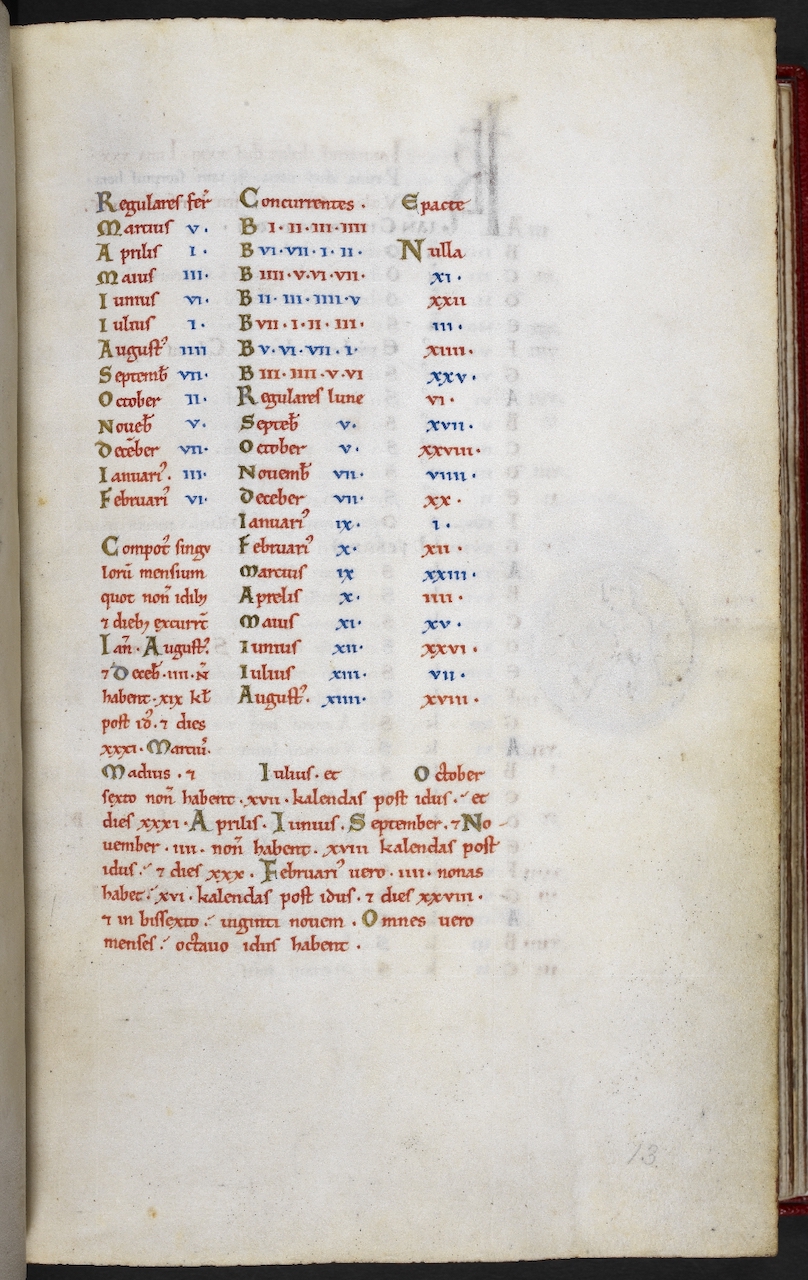 Regulares fer̃ Concurrentes . Epacte
Marcius v . B I · II · III · IIII
Aprilis I · B VI · VII · I · II · Nulla
Maius III · B IIII · V · VI · VII · XI ·
Iunius VI · B II · III · IIII · V XXII
Iulius I · B VII · I · II · III · III ·
August᾽ IIII B V · VI · VII · I · XIIII ·
Septemb̃ VII · B III · IIII · V · VI XXV ·
October II · Regulares lune VI ·
Noueb̃ V · Septeb̃ V · XVII ·
Decẽber VII · October V · XXVIII ·
Ianuari᾽ . III · Nouemb̃ VII · VIIII ·
Februari᾽ VI · Deceber VII · XX ·
Ianuari᾽ IX · I ·
Compot᾽ singu Februari᾽ X · XII ·
lorũ mensium Marcius IX XXIII ·
quot noñ idibȝ Aprelis X · IIII ·
⁊ diebȝ excurrt̃ Maius XI · XV ·
Iañ · August᾽. Iunius XII · XXVI ·
⁊ Deceb̃ · IIII · Ñ Iulius XIII · VII ·
habent · XIX kł August᾽. XIIII · XVIII ·
post id᾽. ⁊ dies
XXXI · Marcii᾽.
Madius . ⁊ Iulius . et October
sexto noñ habent . XVII . kalendas post idus . et
dies XXXI · Aprilis . Iunius . September . ⁊ No-
uember . IIII . noñ habent . XVIII kalendas post
idus . ⁊ dies XXX . Februari᾽ uero . IIII . nonas
habet . XVI . kalendas post idus . ⁊ dies XXVIII .
⁊ in bissexto . uiginti nouem . Omnes uero
menses . octauo idus habent .
13